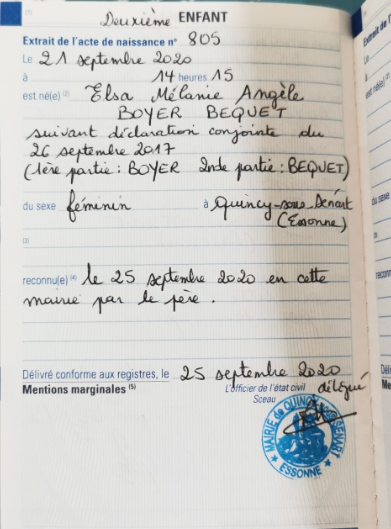 Deuxième ENFANT
Extrait de l'acte de naissance n° 805
Le 21 septembre 2020
à 14 heures 15
est né(e) (2) Elsa Mélanie Angèle
BOYER BEQUET
suivant déclaration conjointe du
26 septembre 2017
(1ère partie : BOYER 2nde partie : BEQUET)
du sexe féminin à Quincy-sous-Sénart
(Essonne)
(3)
reconnu(e) (4) le 25 septembre 2020 en cette
mairie par le père.
Délivré conforme aux registres, le 25 septembre 2020
Mentions marginales (5) L'officier de l'état civil délégué
Sceau
MAIRIE de QUINCY SENART
ESSONNE